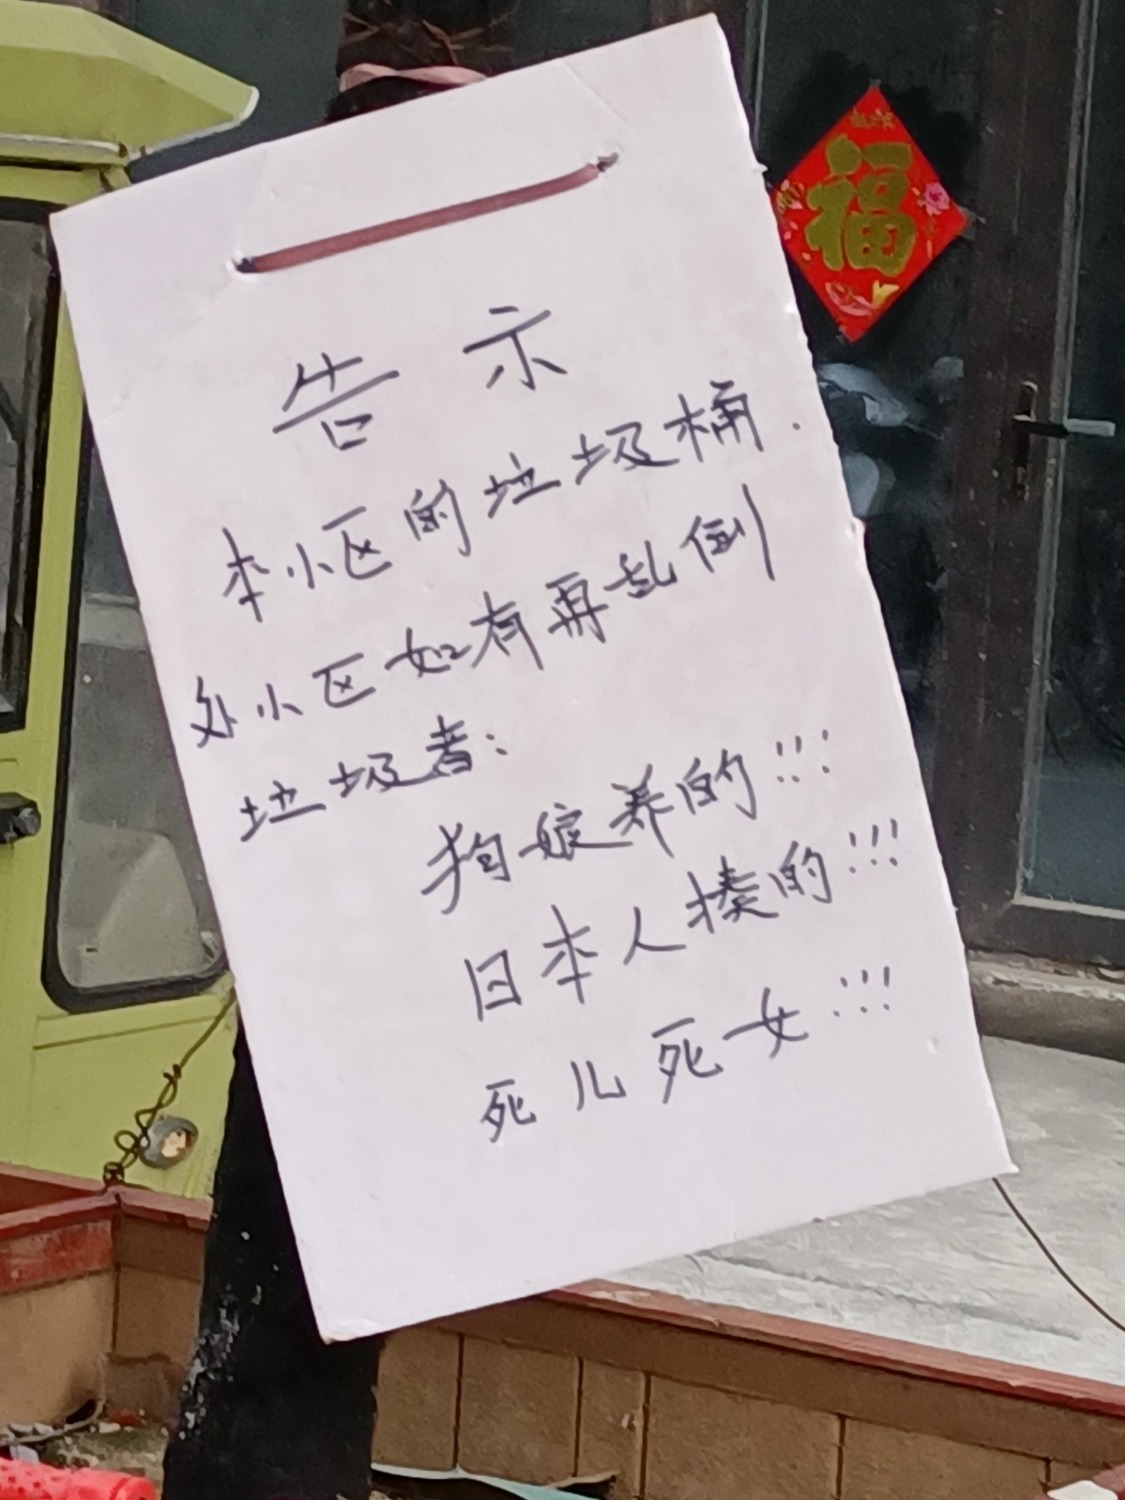 福
告示
本小区的垃圾桶.
外小区如有再乱倒
垃圾者:
狗娘养的!!!
日本人揍的!!!
死儿死女!!!